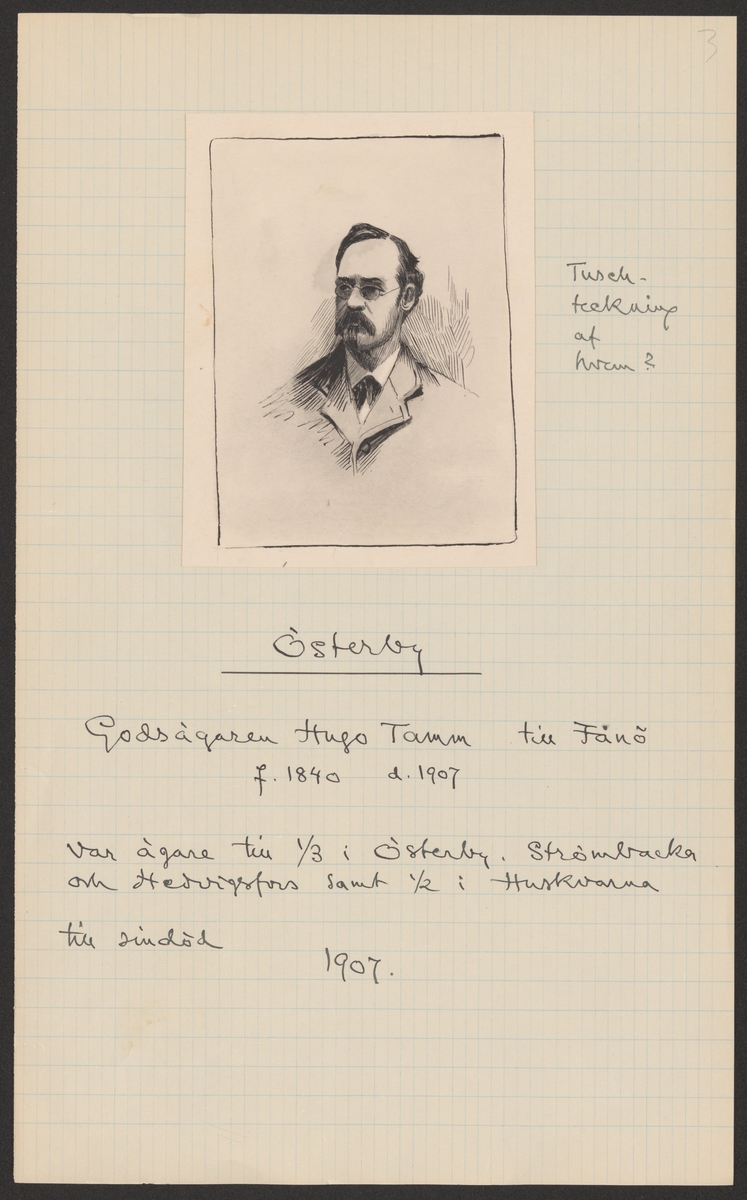 3
Tusch-
teckning
af
hvem?
Österby
Godsägaren Hugo Tamm till Fånö
f. 1840 d. 1907
var ägare till 1/3 i Österby. Strömbacka
och Hedvigsfors samt 1/2 i Huskvarna
till sin död
1907.